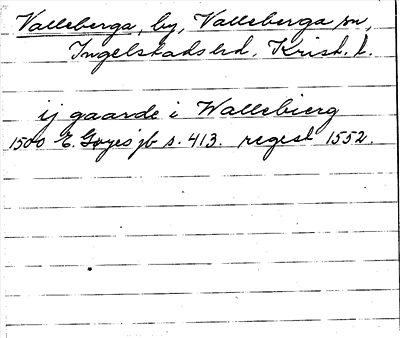 Valleberga, by, Valleberga sn,
Ingelstads hd, Krist. l.
ij gaarde i Wallebierg
1500 E. Gøyes jb s. 413. regest 1552.